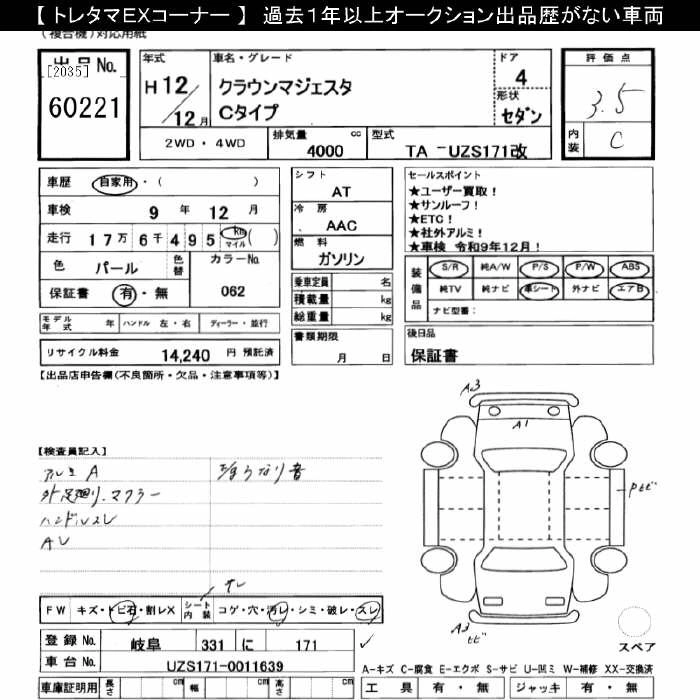 【 トレタマEXコーナー 】 過去１年以上オークション出品歴がない車両
(複合機)対応用紙
出品No.
[2035]
60221
年式
H12/12月
車名・グレード
クラウンマジェスタ
Cタイプ
ドア
4
形状
セダン
評価点
3.5
内装
C
2WD・4WD
排気量 4000 cc
型式 TA -UZS171改
車歴 自家用・( )
車検 9年 12月
走行 17万6千495 km マイル ( )
色 パール
色替
カラーNo. 062
保証書 有・無
シフト AT
冷房 AAC
燃料 ガソリン
乗車定員 名
積載量 kg
総重量 kg
セールスポイント
★ユーザー買取！
★サンルーフ！
★ETC！
★社外アルミ！
★車検 令和9年12月！
装備品
S/R 純A/W P/S P/W ABS
純TV 純ナビ 革シート 外ナビ エアB
ナビ型番：
モデル年式 年 ハンドル 左・右 ディーラー・並行
リサイクル料金 14,240 円 預託済
書類期限
月 日
後日品
保証書
【出品店申告欄(不良箇所・欠品・注意事項等)】
【検査員記入】
アルミ A
外足廻り.マフラー
ハンドルスレ
A3
A1
A3
FW キズ・トビ石・割レX
シート内装 コゲ・穴・汚レ・シミ・破レ・スレ
登録No. 岐阜 331 に 171
車台No. UZS171-0011639
スペア
A-キズ C-腐食 E-エクボ S-サビ U-凹ミ W-補修 XX-交換済
車庫証明用 長さ cm 幅 cm 高さ cm
工具 有・無 ジャッキ 有・無